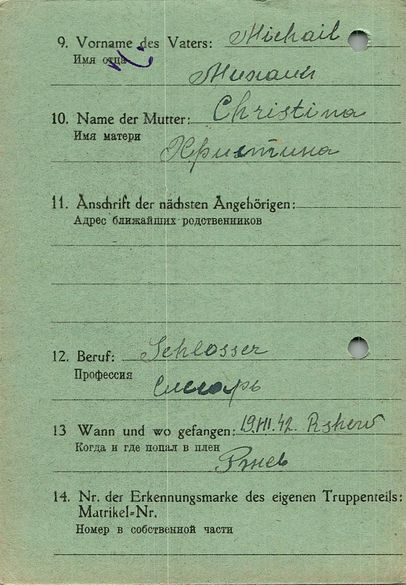 9. Vorname des Vaters: Michail
Имя отца
Михаил
10. Name der Mutter: Christina
Имя матери
Христина
11. Anschrift der nächsten Angehörigen:
Адрес ближайших родственников
12. Beruf: Schlosser
Профессия
Слесарь
13 Wann und wo gefangen: 19.VII.42. Rshew
Когда и где попал в плен
Ржев
14. Nr. der Erkennungsmarke des eigenen Truppenteils:
Matrikel-Nr.
Номер в собственной части